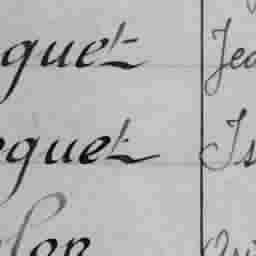 guet Jea
eguet Is
lon